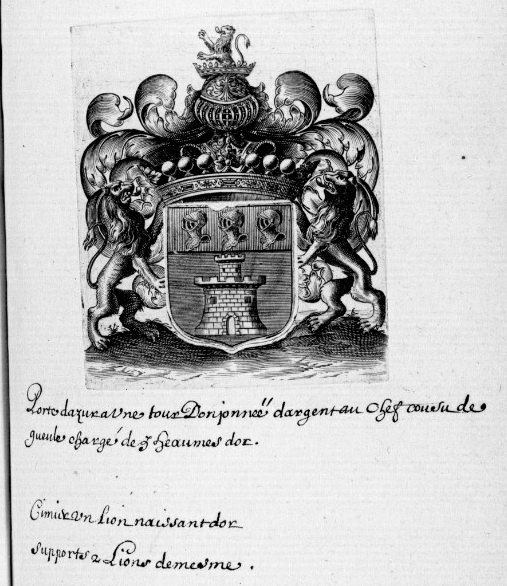 Porte dazur a Vne tour Donjonneë dargent au Chef cousu de
gueule chargé de 3 heaumes dor.
Cimier Vn Lion naissant dor
supports 2 Lions demesme.